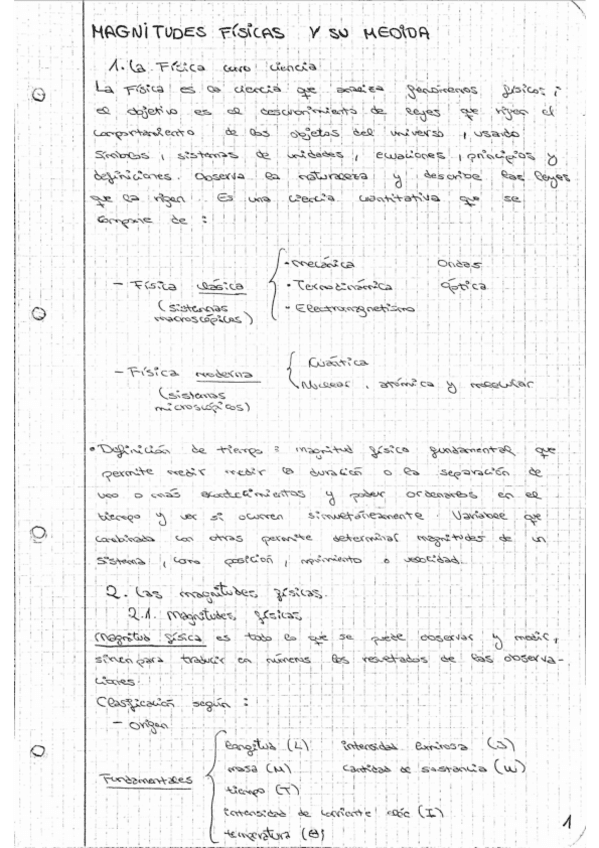 MAGNITUDES FÍSICAS Y SU MEDIDA
1. La Física como ciencia
La Física es la ciencia que analiza fenómenos físicos;
el objetivo es el descubrimiento de leyes que rigen el
comportamiento de los objetos del universo, usando
símbolos, sistemas de unidades, ecuaciones, principios y
definiciones. Observa la naturaleza y describe las leyes
que la rigen. Es una ciencia cuantitativa que se
compone de :
- Física clásica
(sistemas
macroscópicos)
· Mecánica Ondas
· Termodinámica Óptica
· Electromagnetismo
- Física moderna
(sistemas
microscópicos)
Cuántica
Nuclear, atómica y molecular
• Definición de tiempo : magnitud física fundamental que
permite medir medir la duración o la separación de
uno o más acontecimientos y poder ordenarlos en el
tiempo y ver si ocurren simultáneamente. Variable que
combinada con otras permite determinar magnitudes de un
sistema, como posición, movimiento o velocidad.
2. Las magnitudes físicas.
2.1. Magnitudes físicas
Magnitud física es todo lo que se puede observar y medir,
sirven para traducir en números los resultados de las observa-
ciones.
Clasificación según :
- Origen
Fundamentales
longitud (L) intensidad luminosa (J)
masa (M) cantidad de sustancia (N)
tiempo (T)
intensidad de corriente eléc (I)
temperatura (θ)
1